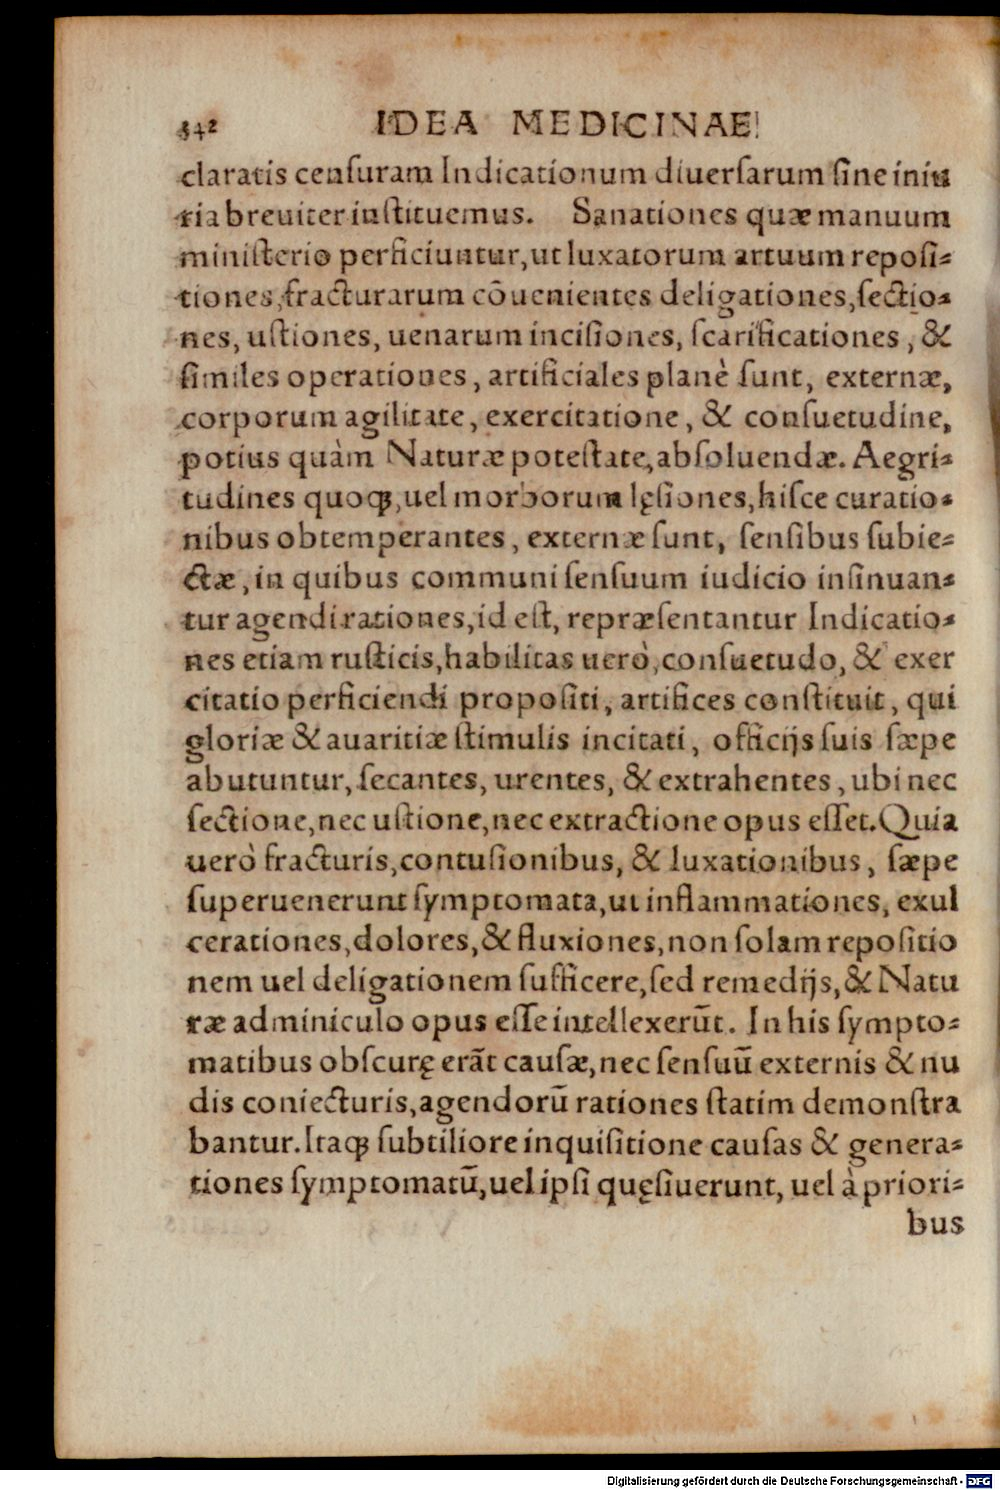 342 IDEA MEDICINAE
claratis censuram Indicationum diuersarum sine iniu
ria breuiter instituemus. Sanationes quæ manuum
ministerio perficiuntur, ut luxatorum artuum reposi-
tiones, fracturarum cōuenientes deligationes, sectio-
nes, ustiones, uenarum incisiones, scarificationes, &
similes operationes, artificiales planè sunt, externæ,
corporum agilitate, exercitatione, & consuetudine,
potius quàm Naturæ potestate, absoluendæ. Aegri-
tudines quoqꝫ, uel morborum lęsiones, hisce curatio-
nibus obtemperantes, externæ sunt, sensibus subie-
ctæ, in quibus communi sensuum iudicio insinuan-
tur agendi rationes, id est, repræsentantur Indicatio-
nes etiam rusticis, habilitas uerò, consuetudo, & exer
citatio perficiendi propositi, artifices constituit, qui
gloriæ & auaritiæ stimulis incitati, officijs suis sæpe
abutuntur, secantes, urentes, & extrahentes, ubi nec
sectione, nec ustione, nec extractione opus esset. Quia
uerò fracturis, contusionibus, & luxationibus, sæpe
superuenerunt symptomata, ut inflammationes, exul
cerationes, dolores, & fluxiones, non solam repositio
nem uel deligationem sufficere, sed remedijs, & Natu
ræ adminiculo opus esse intellexerūt. In his sympto-
matibus obscurę erāt causæ, nec sensuū externis & nu
dis coniecturis, agendorū rationes statim demonstra
bantur. Itaqꝫ subtiliore inquisitione causas & genera-
tiones symptomatū, uel ipsi quęsiuerunt, uel à priori-
bus
Digitalisierung gefördert durch die Deutsche Forschungsgemeinschaft - DFG